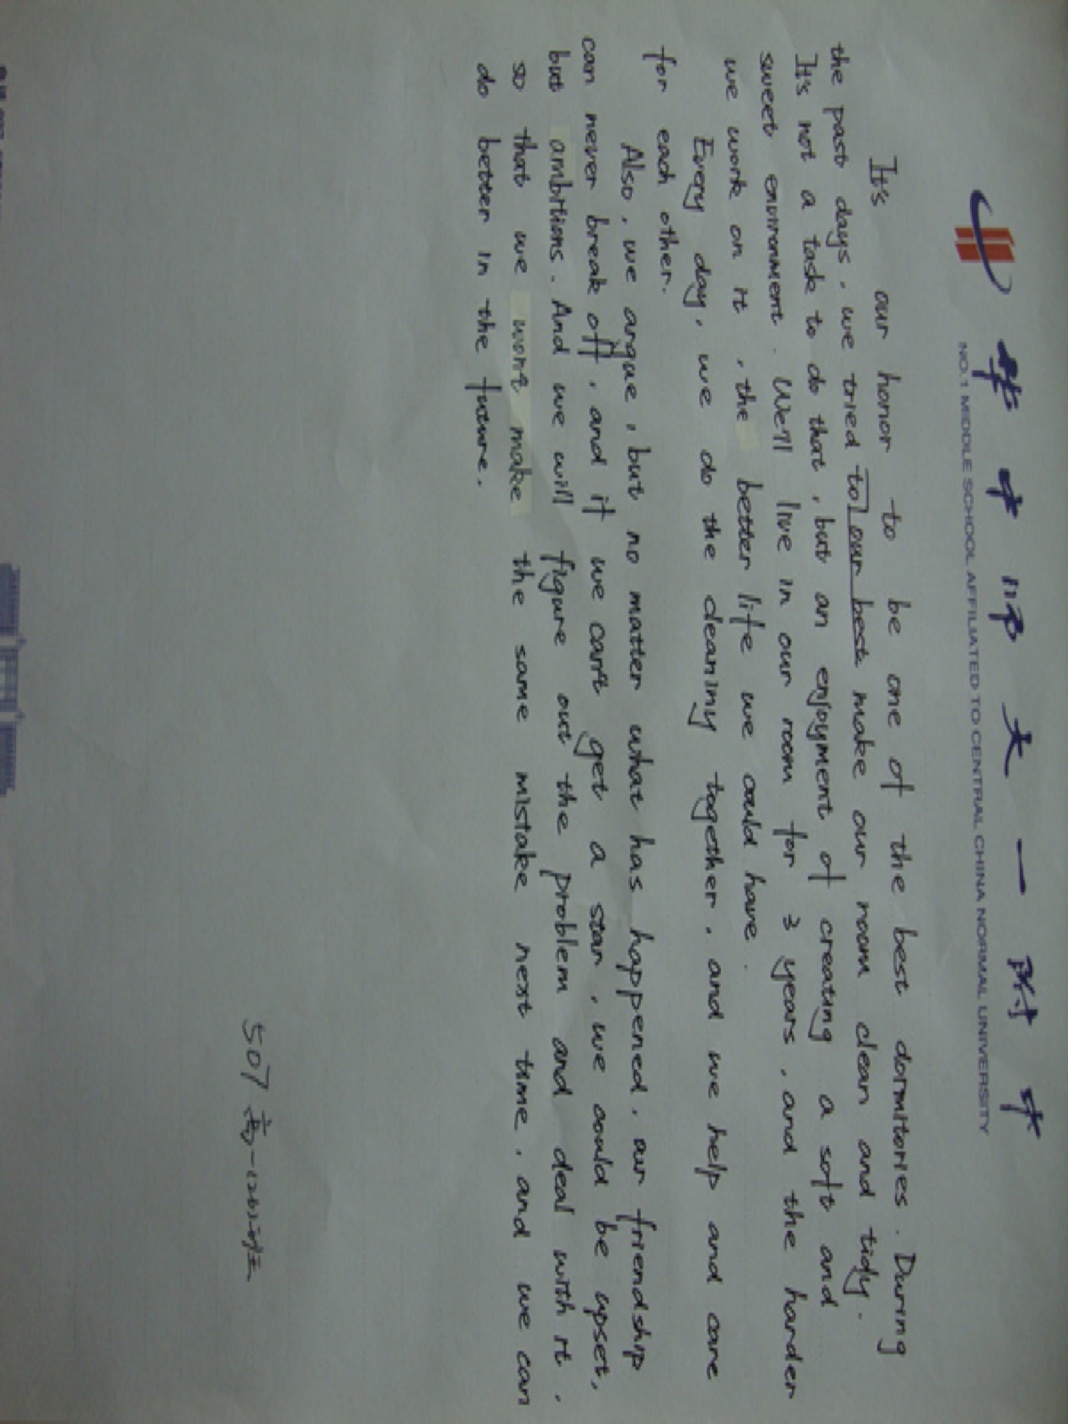 华中师大一附中
NO.1 MIDDLE SCHOOL AFFILIATED TO CENTRAL CHINA NORMAL UNIVERSITY
It's our honor to be one of the best dormitories. During
the past days, we tried to our best make our room clean and tidy.
It's not a task to do that, but an enjoyment of creating a soft and
sweet environment. We'll live in our room for 3 years, and the harder
we work on it, the better life we could have.
Every day, we do the cleaning together, and we help and care
for each other.
Also, we argue, but no matter what has happened, our friendship
can never break off, and if we can't get a star, we could be upset,
but ambitions. And we will figure out the problem and deal with it,
so that we won't make the same mistake next time, and we can
do better in the future.
507 高一